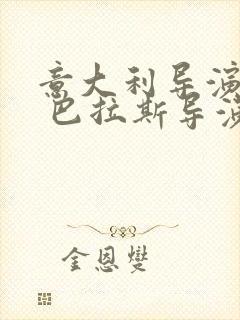 意大利导演
巴拉斯导演
金恩燮